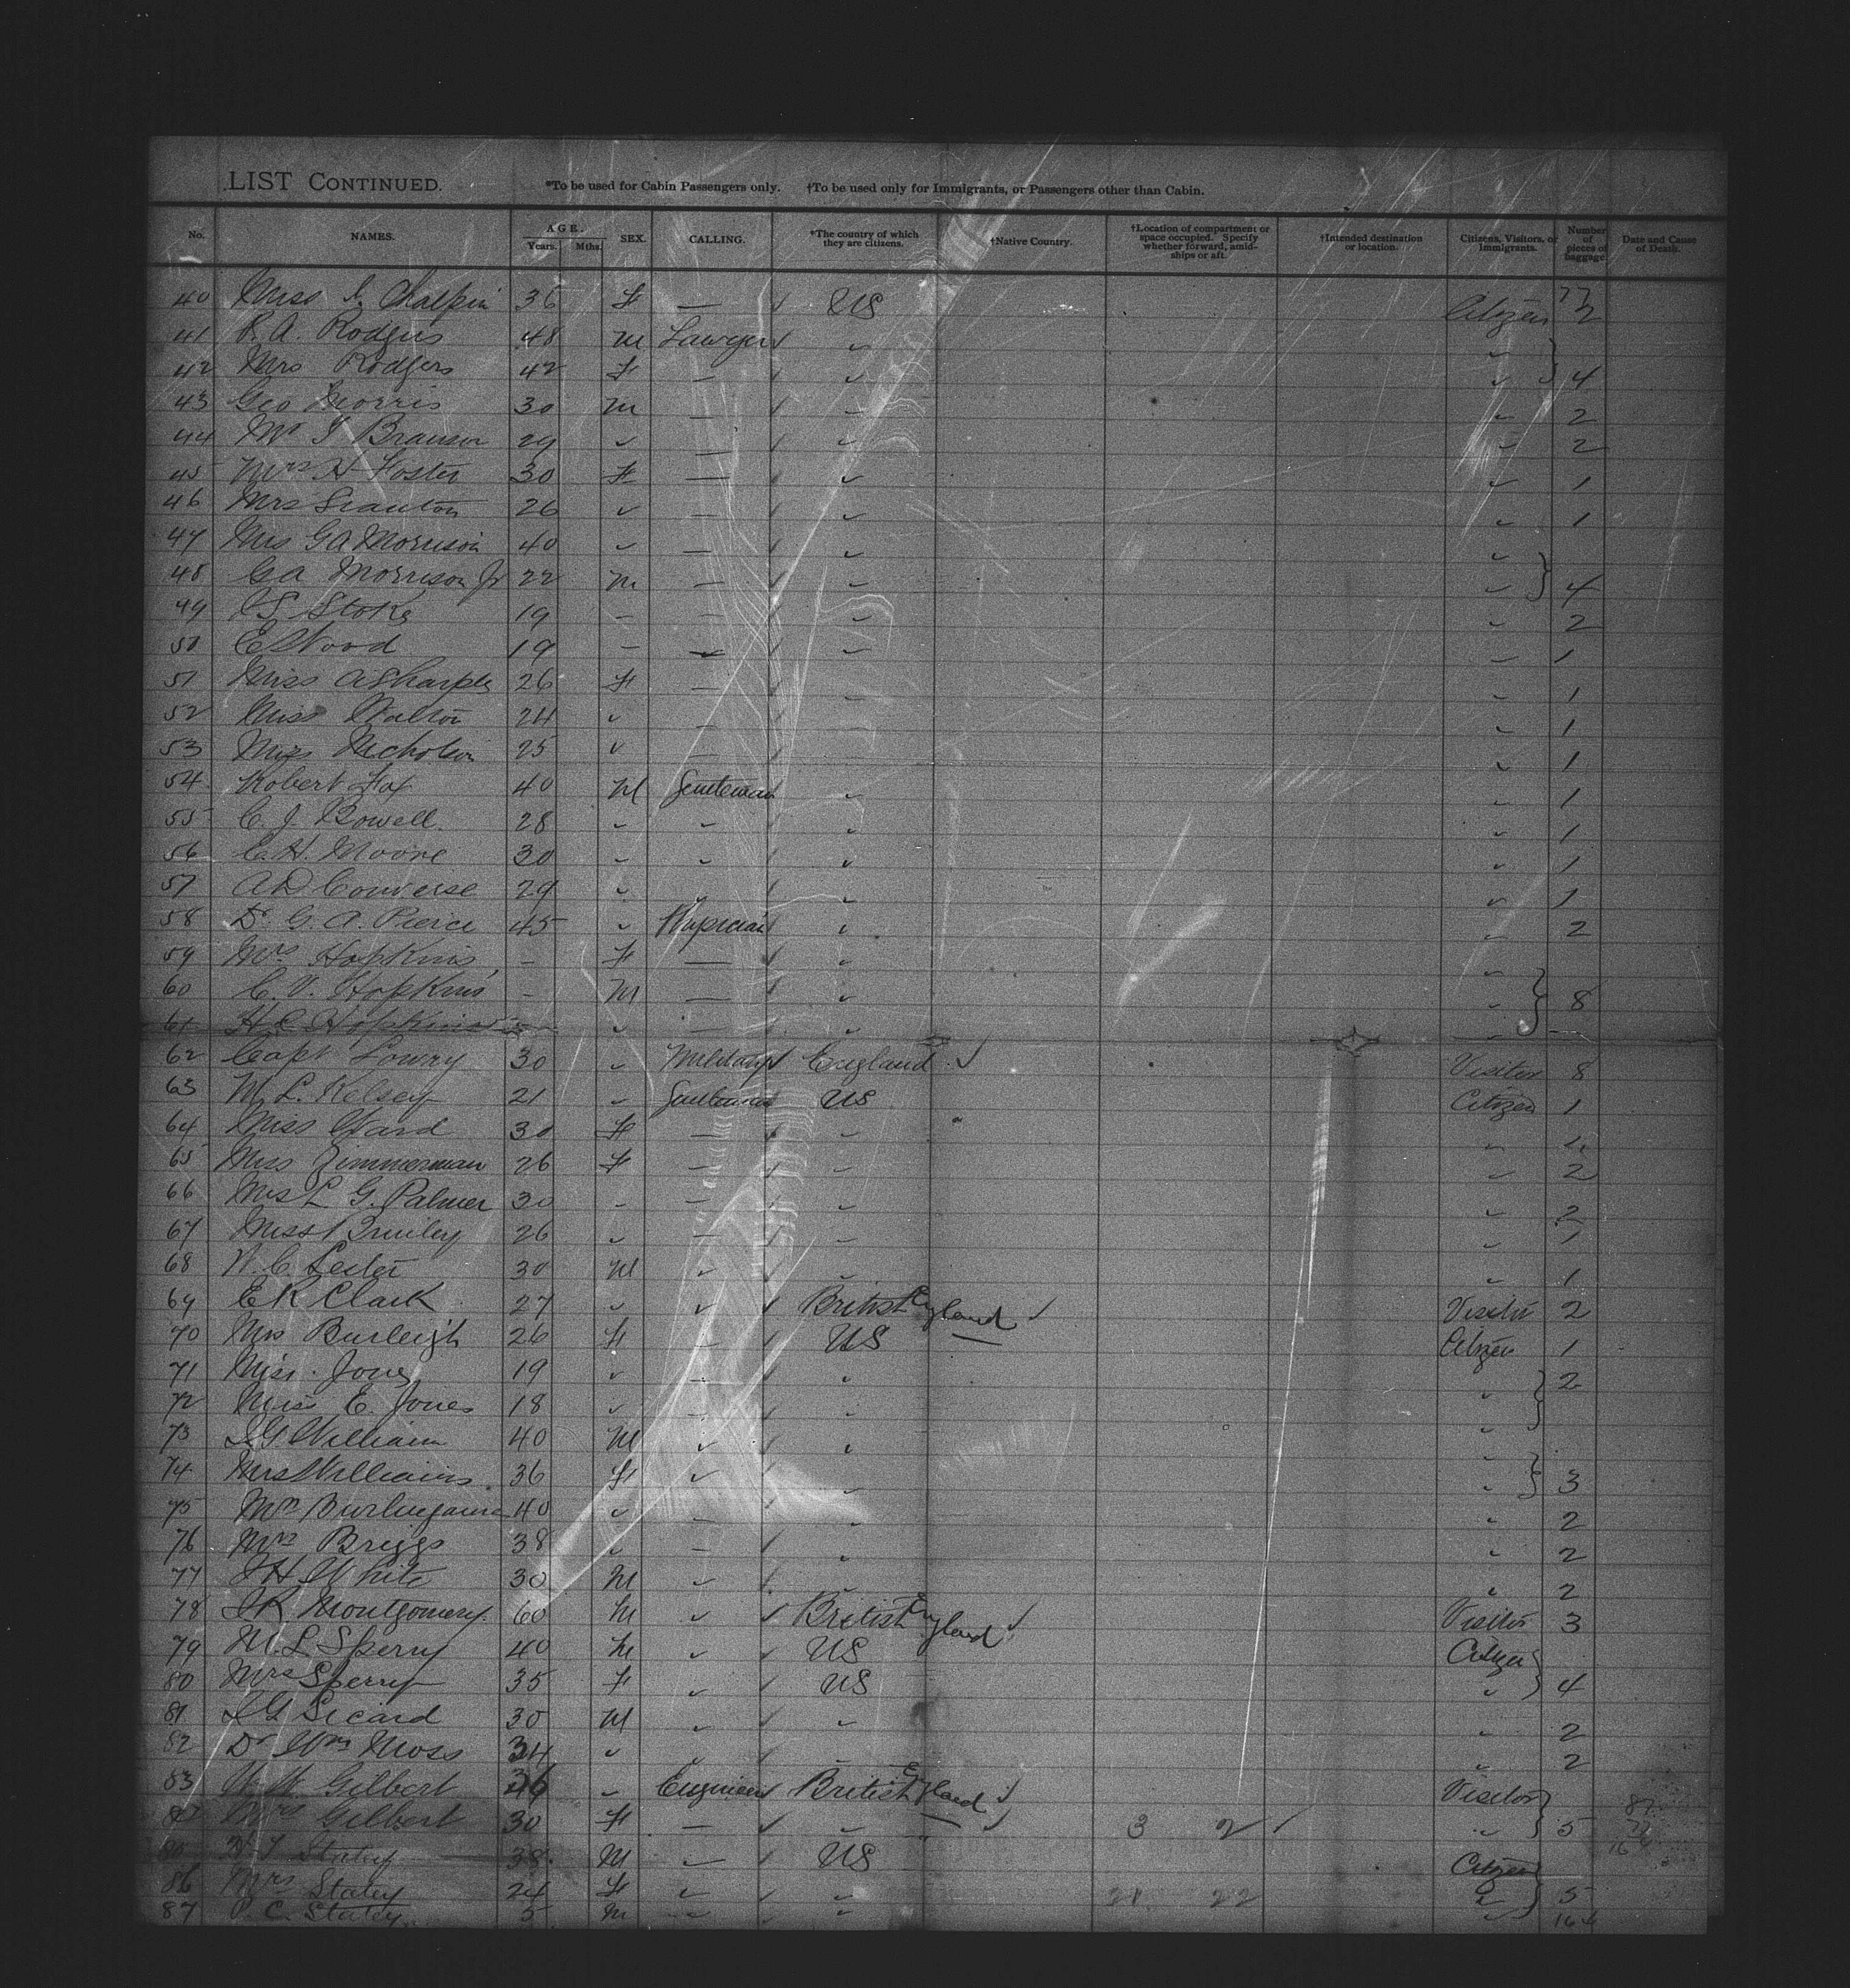 LIST CONTINUED. *To be used for Cabin Passengers only. †To be used only for Immigrants, or Passengers other than Cabin.
No. NAMES. AGE. Years. Mths. SEX. CALLING. *The country of which they are citizens. †Native Country. †Location of compartment or space occupied. Specify whether forward, amidships or aft. †Intended destination or location. Citizens, Visitors, or Immigrants. Number of pieces of baggage Date and Cause of Death.
77
40 Miss Chalpin 36 F — ✓ US Citizen 2
41 R. A. Rodgers 48 M Lawyer ✓ ✓ ✓
42 Mrs Rodgers 42 F — ✓ ✓ ✓ 4
43 Geo Morris 30 M — ✓ ✓ ✓ 2
44 Mr Branson 29 ✓ — ✓ ✓ ✓ 2
45 Mrs H Foster 30 F — ✓ ✓ ✓ 1
46 Mrs Stanton 26 ✓ — ✓ ✓ ✓ 1
47 Mrs GA Morrison 40 ✓ — ✓ ✓ ✓
48 GA Morrison Jr 22 M — ✓ ✓ ✓ 4
49 Stoke 19 – — ✓ ✓ ✓ 2
50 E Wood 19 – — ✓ ✓ ✓ 1
51 Miss A Sharples 26 F — ✓ ✓ ✓ 1
52 Miss Walton 24 ✓ — ✓ ✓ ✓ 1
53 Miss Nicholson 25 ✓ — ✓ ✓ ✓ 1
54 Robert Fox 40 M Gentleman ✓ ✓ 1
55 C. J. Bowell. 28 ✓ ✓ ✓ ✓ ✓ 1
56 C. H. Moore 30 ✓ ✓ ✓ ✓ ✓ 1
57 A D Converse 29 ✓ ✓ ✓ ✓ ✓ 1
58 Dr. G. A. Pierce 45 ✓ Physician ✓ ✓ 2
59 Mrs Hopkins – F — ✓ ✓ ✓
60 C. V. Hopkins – M — ✓ ✓ ✓ 8
61 H C Hopkins ✓ — ✓ ✓ ✓
62 Capt Lowry 30 ✓ Military England ✓ Visitor 8
63 L. Kelsey 21 ✓ Gentleman US Citizen 1
64 Miss Ward 30 F — ✓ ✓ ✓
65 Miss Zimmerman 26 F — ✓ ✓ ✓ 2
66 Mrs L G. Palmer 30 – — ✓ ✓ ✓ 2
67 Miss 26 ✓ — ✓ ✓ ✓ 1
68 Lester 30 M ✓ ✓ ✓ ✓ 1
69 E K Clark 27 ✓ ✓ ✓ British England ✓ Visitor 2
70 Mrs Burleigh 26 F — ✓ US Citizen 1
71 Miss Jones 19 ✓ — ✓ ✓ ✓ 2
72 Miss E. Jones 18 ✓ — ✓ ✓ ✓
73 William 40 M ✓ ✓ ✓ ✓
74 Mrs Williams 36 F ✓ ✓ ✓ ✓ 3
75 Mrs Burlingame 40 ✓ — ✓ ✓ ✓ 2
76 Mrs Briggs 38 ✓ — ✓ ✓ ✓ 2
77 H White 30 M ✓ ✓ ✓ ✓ 2
78 Montgomery. 60 M ✓ ✓ British England ✓ Visitor 3
79 L Sperry 40 M ✓ US Citizen
80 Mrs Sperry 35 F ✓ ✓ US ✓ 4
81 Sicard 30 M ✓ ✓ ✓ ✓ 2
82 Dr Wm Moss 34 ✓ ✓ ✓ ✓ ✓ 2
83 Gilbert 36 ✓ Engineer British England ✓ Visitor
84 Mrs Gilbert 30 F — ✓ ✓ ✓ 3 2 ✓ 5 87
85 Staley 38 M ✓ ✓ US Citizen
86 Mrs Staley 24 F ✓ ✓ ✓ 21 22 5
87 C. Staley 5 M ✓ ✓ ✓ ✓ 164